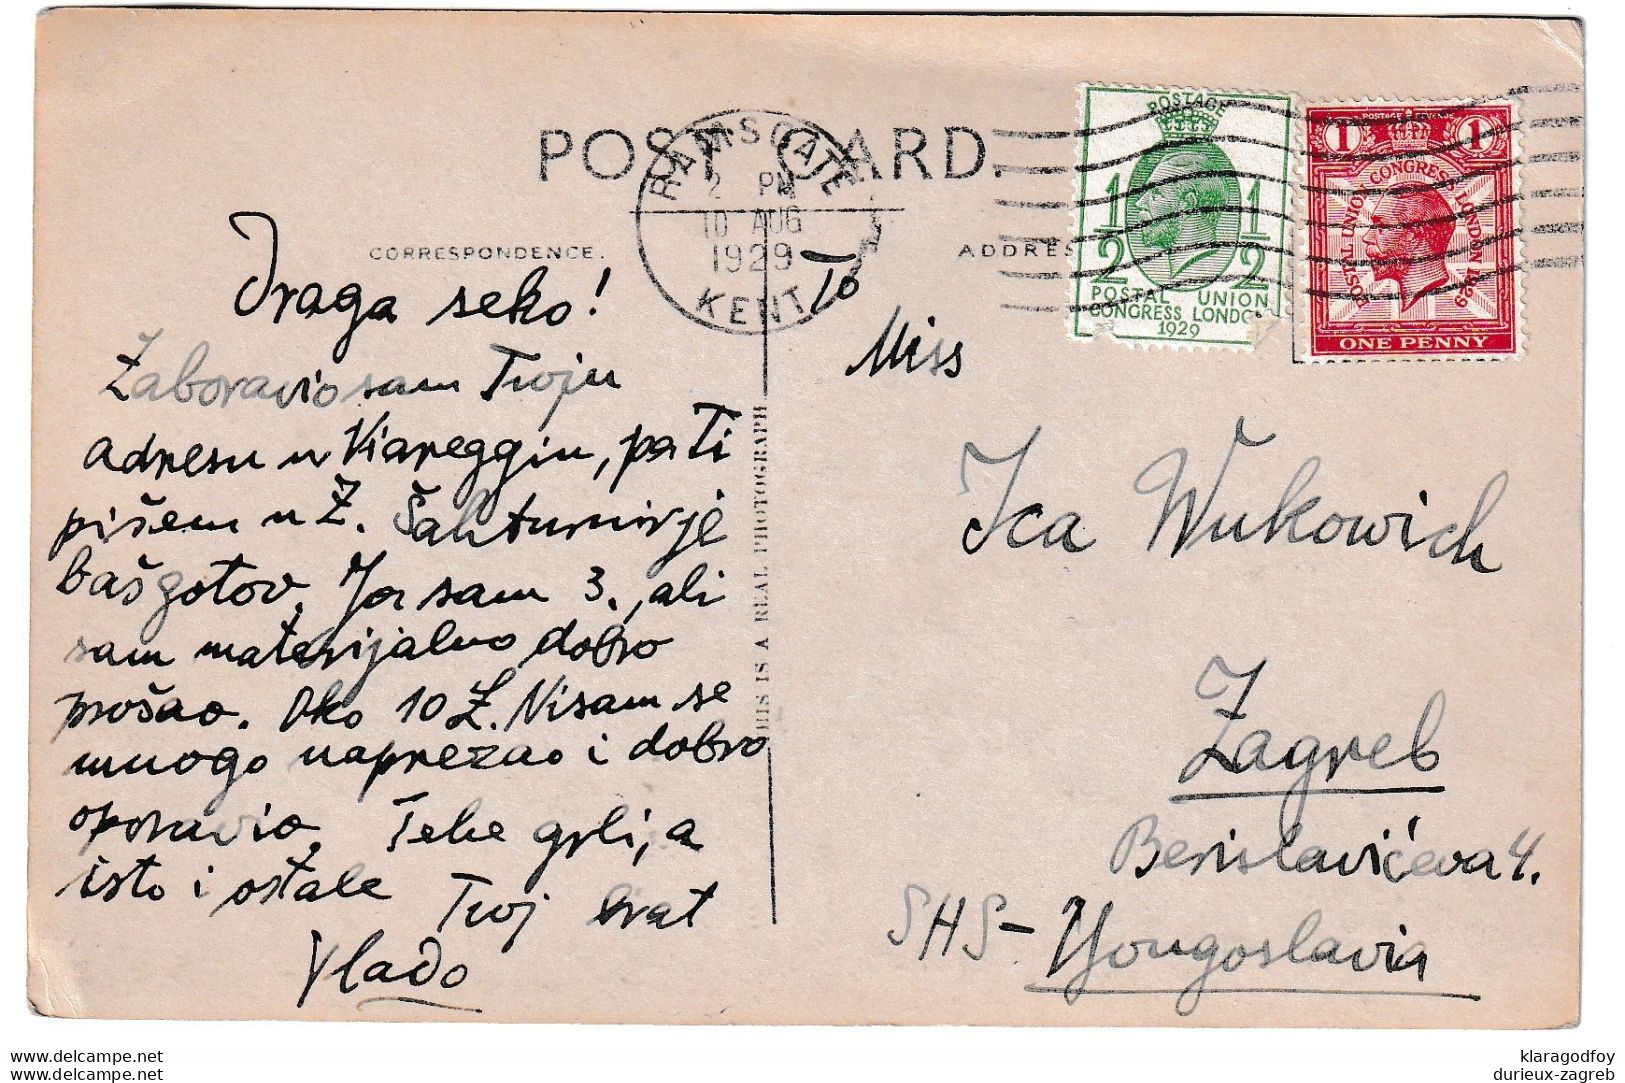 POST CARD.
CORRESPONDENCE.
ADDRES
RAMSGATE
2 PM
10 AUG
1929
KENT
POSTAGE
1/2 1/2
POSTAL UNION
CONGRESS LONDO
1929
POSTAGE & REVENUE
1 1
POSTAL UNION CONGRESS LONDON 1929
ONE PENNY
Draga seko!
Zaboravio sam Tvoju
adresu u Viareggiu, pa Ti
pišem u Z. Šahturnir je
baš gotov. Ja sam 3., ali
sam materijalno dobro
prošao. Oko 10 £. Nisam se
mnogo naprezao i dobro
oporavio. Tebe grli, a
isto i ostale
Tvoj brat
Vlado
THIS IS A REAL PHOTOGRAPH
To
Miss
Ica Wukowich
Zagreb
Berislavićeva 4.
SHS - Yougoslavia
www.delcampe.net
www.delcampe.net
klaragodfoy
durieux-zagreb